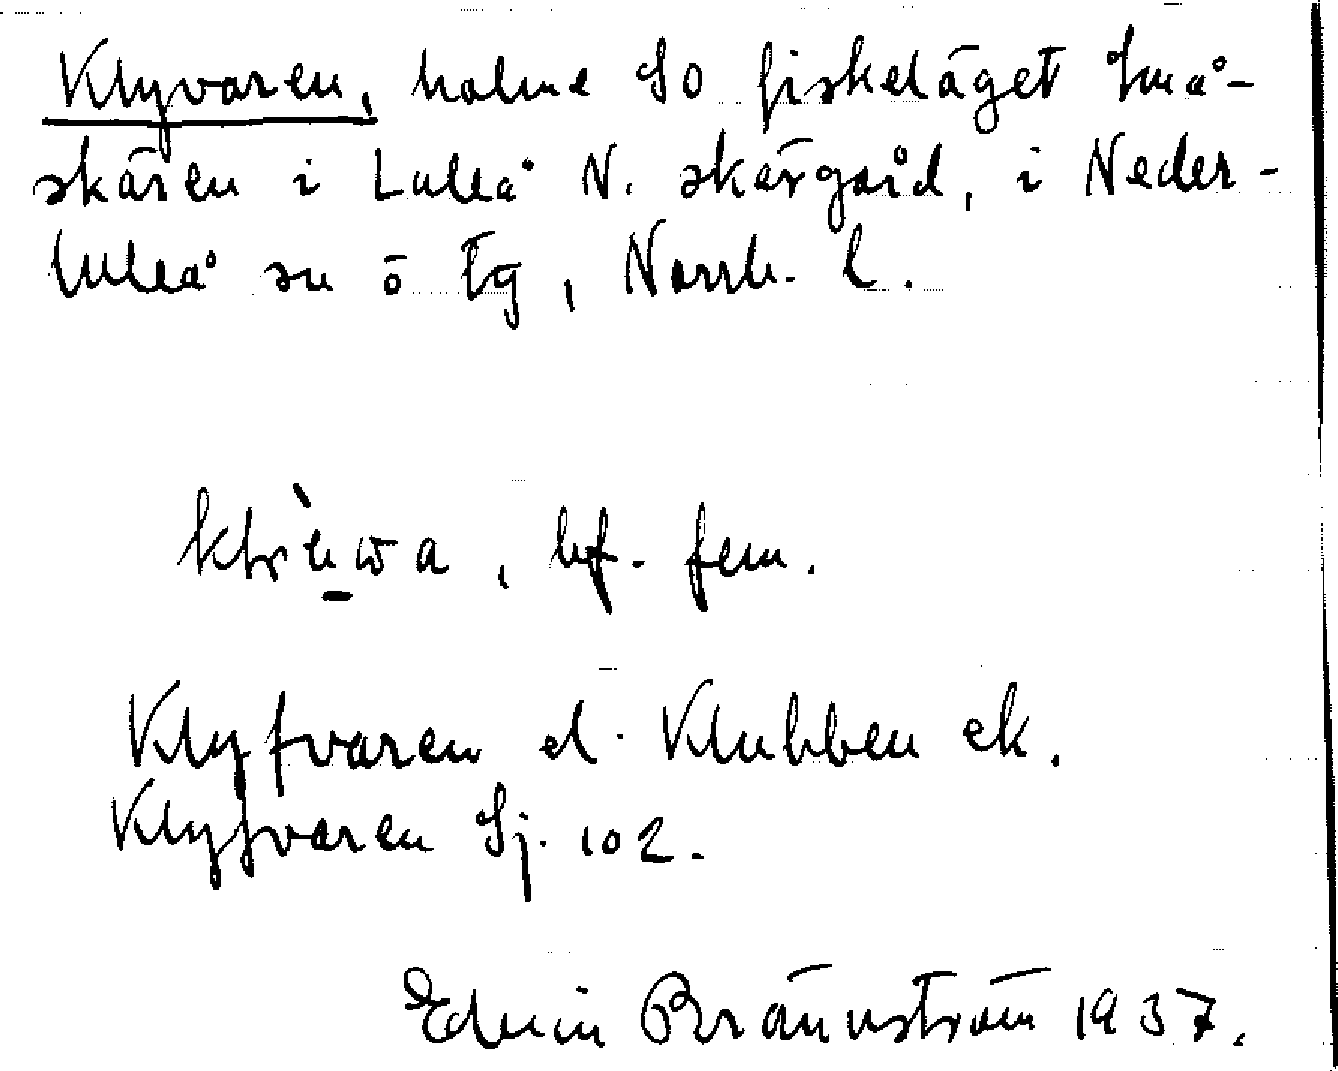 Klyvaren, holme SO fiskeläget Små-
skären i Luleå N. skärgård, i Neder-
luleå sn ö tg, Norrb. l.
bf. fem.
Klyfvaren el. Klubben ek.
Klyfvaren Sj. 102.
Edvin Brännström 1937.